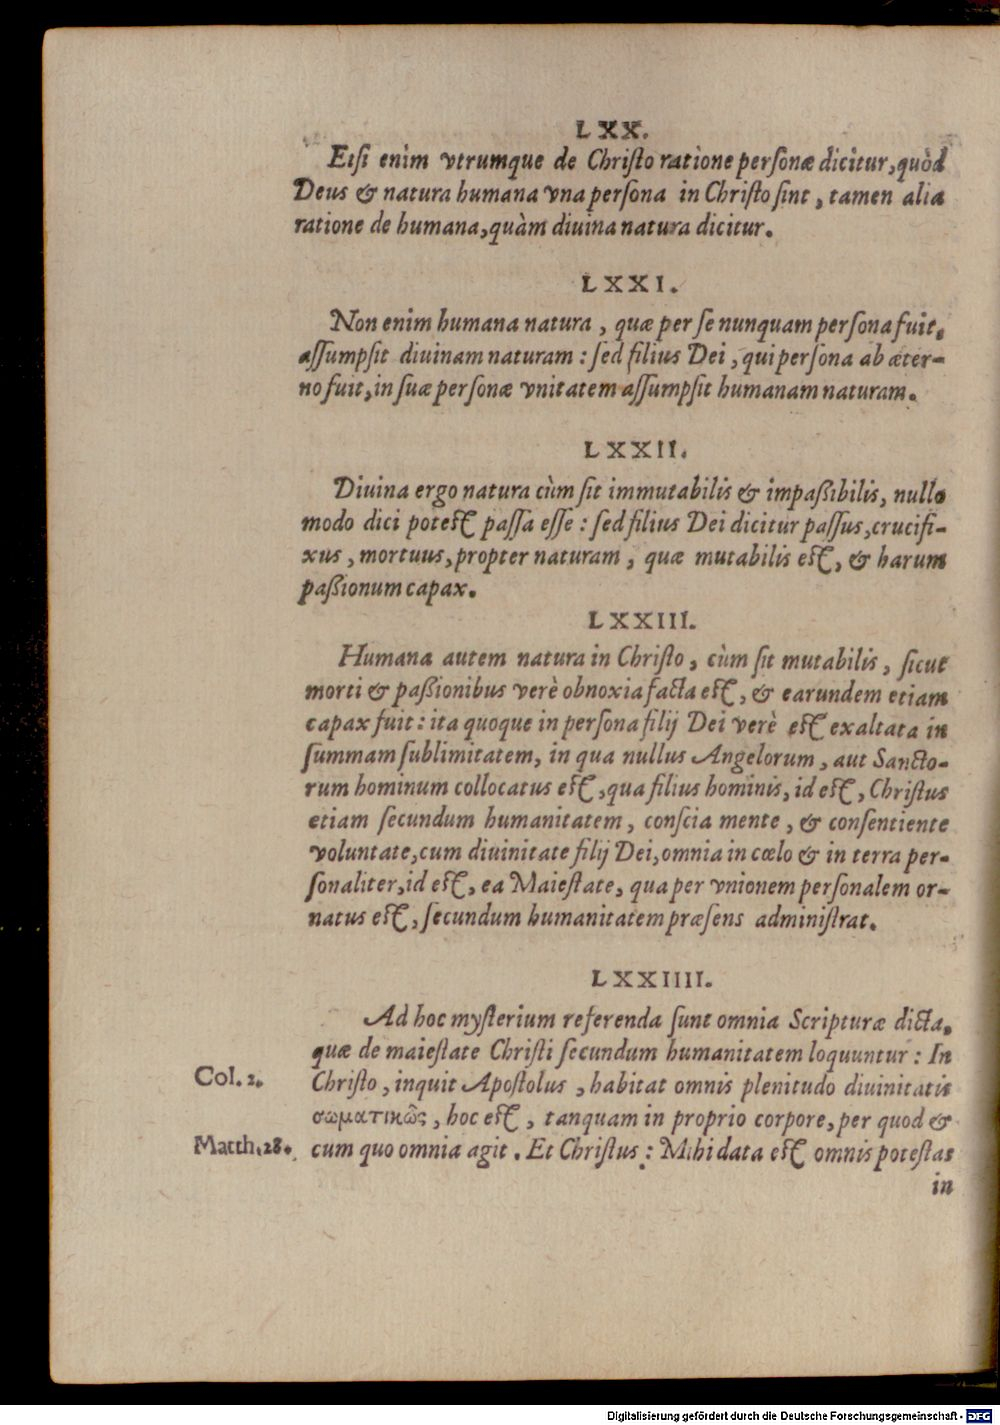 LXX.
Etsi enim vtrumque de Christo ratione personæ dicitur, quòd
Deus & natura humana vna persona in Christo sint, tamen alia
ratione de humana, quàm diuina natura dicitur.
LXXI.
Non enim humana natura, quæ per se nunquam persona fuit,
assumpsit diuinam naturam: sed filius Dei, qui persona ab æter-
no fuit, in suæ personæ vnitatem assumpsit humanam naturam.
LXXII.
Diuina ergo natura cùm sit immutabilis & impaßibilis, nullo
modo dici potest passa esse: sed filius Dei dicitur passus, crucifi-
xus, mortuus, propter naturam, quæ mutabilis est, & harum
paßionum capax.
LXXIII.
Humana autem natura in Christo, cùm sit mutabilis, sicut
morti & paßionibus verè obnoxia facta est, & earundem etiam
capax fuit: ita quoque in persona filij Dei verè est exaltata in
summam sublimitatem, in qua nullus Angelorum, aut Sancto-
rum hominum collocatus est, qua filius hominis, id est, Christus
etiam secundum humanitatem, conscia mente, & consentiente
voluntate, cum diuinitate filij Dei, omnia in cœlo & in terra per-
sonaliter, id est, ea Maiestate, qua per vnionem personalem or-
natus est, secundum humanitatem præsens administrat.
LXXIIII.
Ad hoc mysterium referenda sunt omnia Scripturæ dicta,
quæ de maiestate Christi secundum humanitatem loquuntur: In
Col. 2.
Christo, inquit Apostolus, habitat omnis plenitudo diuinitatis
σωματικῶς, hoc est, tanquam in proprio corpore, per quod &
Matth. 28.
cum quo omnia agit. Et Christus: Mihi data est omnis potestas
in
Digitalisierung gefördert durch die Deutsche Forschungsgemeinschaft - DFG